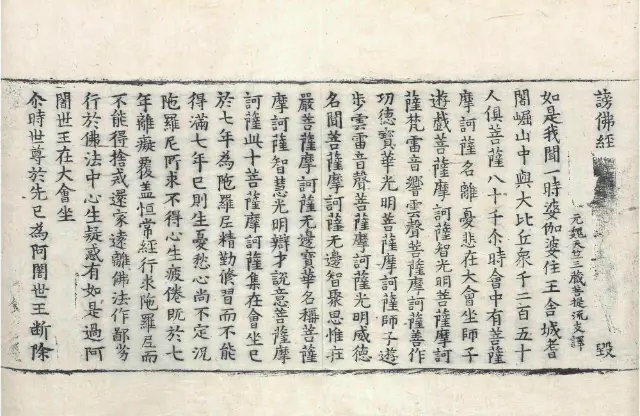 謗佛經 毀
元魏天竺三藏菩提流支譯
如是我聞一時婆伽婆住王舍城耆
闍崛山中與大比丘衆千二百五十
人俱菩薩八十千尒時會中有菩薩
摩訶薩名離憂悲在大會坐師子
遊戲菩薩摩訶薩智光明菩薩摩訶
薩梵雷音響雲聲菩薩摩訶薩善作
功德寶華光明菩薩摩訶薩師子遊
步雲雷音聲菩薩摩訶薩光明威德
名聞菩薩摩訶薩无邊智聚思惟在
嚴菩薩摩訶薩无邊寶華名稱菩薩
摩訶薩智慧光明辯才說意菩薩摩
訶薩此十菩薩摩訶薩集在會坐已
於七年為陁羅尼精勤修習而不能
得滿七年已則生憂愁心尚不定況
陁羅尼所求不得心生疲倦旣於七
年離癡覆盖恒常經行求陁羅尼而
不能得捨戒還家遠離佛法作鄙劣
行於佛法中心生疑惑有如是過阿
闍世王在大會坐
尒時世尊於先已為阿闍世王断除